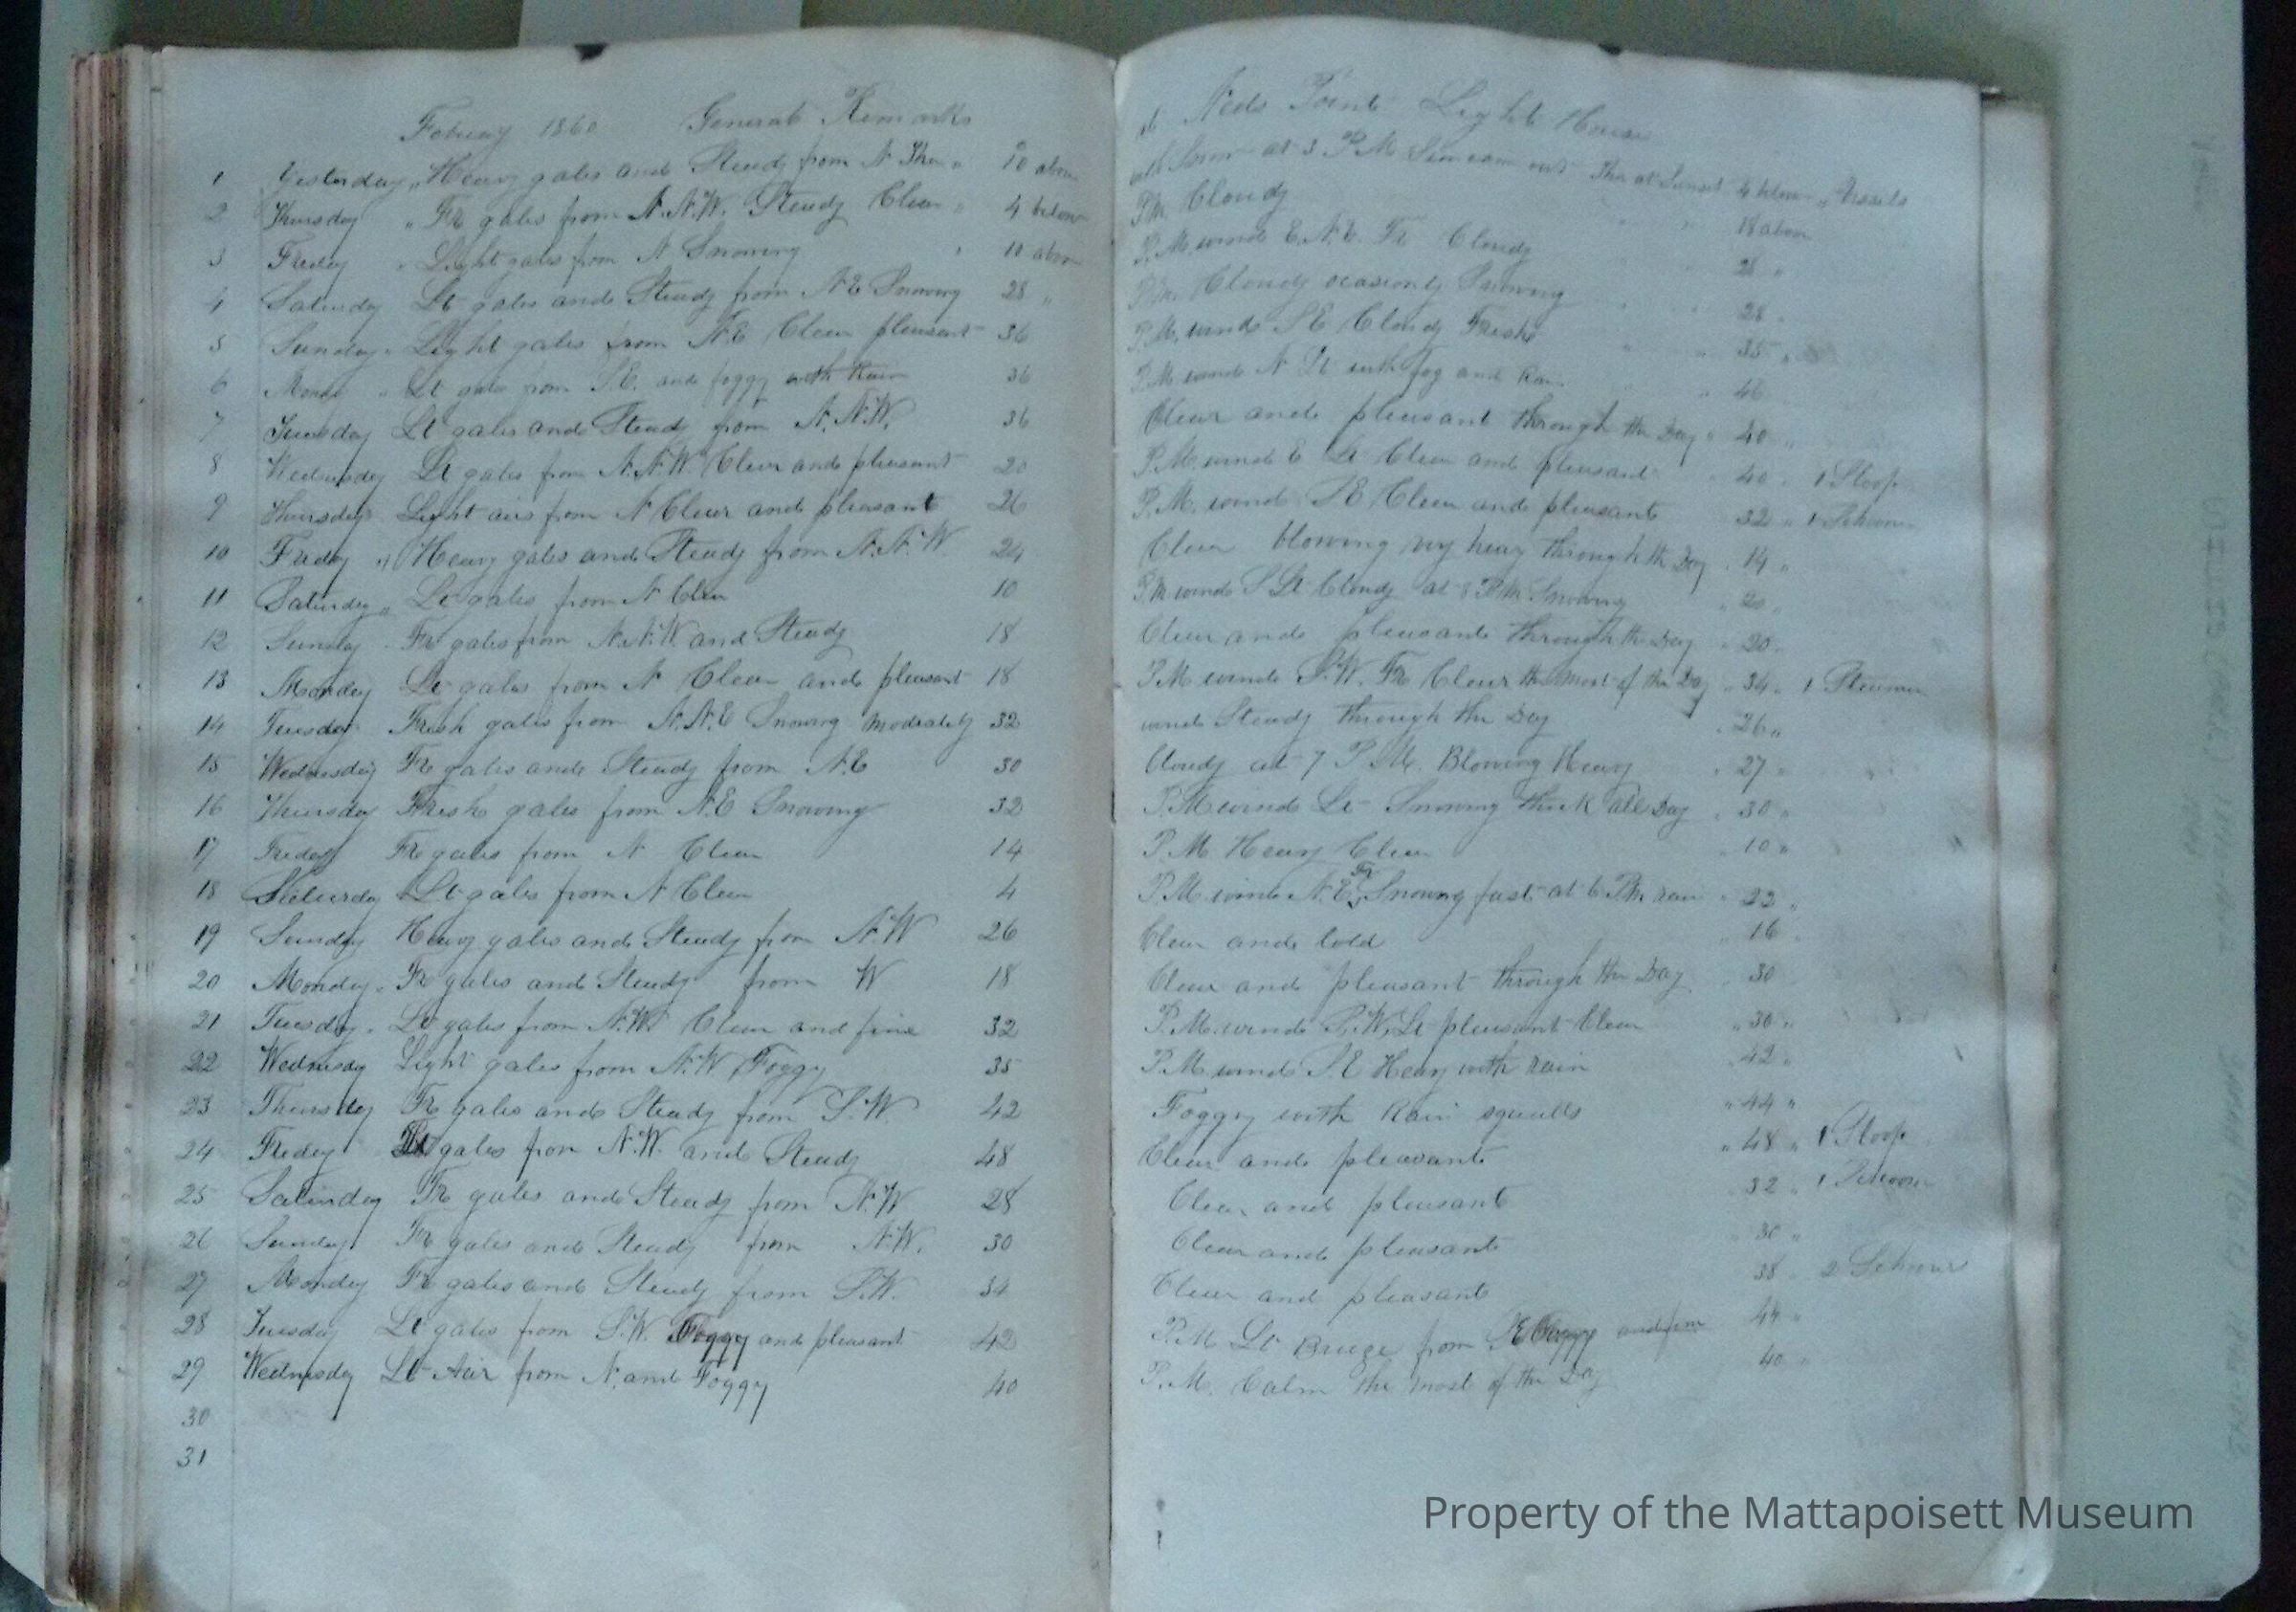 Febuary 1860 General Remarks
1 Yesterday " Heavy gales and Steady from N Ther " 10 above
2 Thursday " Fr gales from N.N.W. Steady Clear " 4 below
3 Friday " Light gales from N Snowing " 10 above
4 Saturday Lt gales and Steady from N E Snowing 28 "
5 Sunday " Light gales from N.E Clear pleasant 36
6 Monda " Lt gales from S.E. and foggy with Rain 36
7 Tuesday Lt gales and Steady from N.N.W. 36
8 Wednesday Lt gales from N.N.W. Clear and pleasant 20
9 Thursday Light airs from N Clear and pleasant 26
10 Friday " Heavy gales and Steady from N.N.W. 24
11 Saturday " Lt gales from N Clear 10
12 Sunday " Fr gales from N.N.W and Steady 18
13 Monday Lt gales from N Clear and pleasant 18
14 Tuesday Fresh gales from N.N.E Snowing Modrately 32
15 Wednesday Fr gales and Steady from N.E 30
16 Thursday Fresh gales from N.E Snowing 32
17 Friday Fr gales from N Clear 14
18 Saturday Lt gales from N Clear 4
19 Sunday Heavy gales and Steady from N.W 26
20 Monday " Fr gales and Steady from W 18
21 Tuesday " Lt gales from N.W. Clear and fine 32
22 Wednesdy Light gales from N.W Foggy 35
23 Thursday Fr gales and Steady from S.W. 42
24 Friday Lt gales from N.W. and Steady 48
25 Saturday Fr gales and Steady from N.W 28
26 Sunday Fr gales and Steady from N.W. 30
27 Monday Fr gales and Steady from S.W. 34
28 Tuesday Lt gales from S.W. Foggy and pleasant 42
29 Wednesday Lt Air from N. and Foggy 40
30
31
at Neds Point Light House
with Snow at 3 P.M Sun came out Ther at Sunset 4 below " Vessels
P.M. Cloudy " " 18 above
P.M. wind E.N.E. Fr Cloudy " " 28 "
P.M. Cloudy ocasionly Snowing " " 28 "
P.M. wind S E Cloudy Fresh " " 35 "
P.M wind N Lt with fog and Rain " 46
Clear and pleasant through the Day " 40 "
P.M. wind E Lt Clear and pleasant " 40 " 1 Sloop
P.M. wind S E Clear and pleasant 32 " 1 Schooner
Clear blowing very heavy through the Day " 14 "
P.M wind S Lt Cloudy at 8 P.M. Snowing " 20 "
Clear and pleasant through the Day " 20 "
P.M wind S.W. Fr Clear the most of the Day " 34 " 1 Steamer
wind Steady through the Day " 26 "
Cloudy at 7 P.M. Blowing Heavy " 27 "
P.M wind Lt Snowing thick all Day " 30 "
P.M Heavy Clear " 10 "
P.M. wind N.E. Fr Snowing fast at 6 P.M rain " 22 "
Clear and Cold " 16 "
Clear and pleasant through the Day " 30
P.M. wind S.W. Lt pleasant Clear " 36 "
P.M. wind S.E Heavy with rain " 42 "
Foggy with Rain squalls " 44 "
Clear and pleasant " 48 " 1 Sloop
Clear and pleasant 32 " 1 Schooner
Clear and pleasant " 30 "
Clear and pleasant 38 " 2 Schooners
P.M Lt Breeze from S E Foggy and fine 44 "
P.M. Calm the most of the Day 40 "
Property of the Mattapoisett Museum